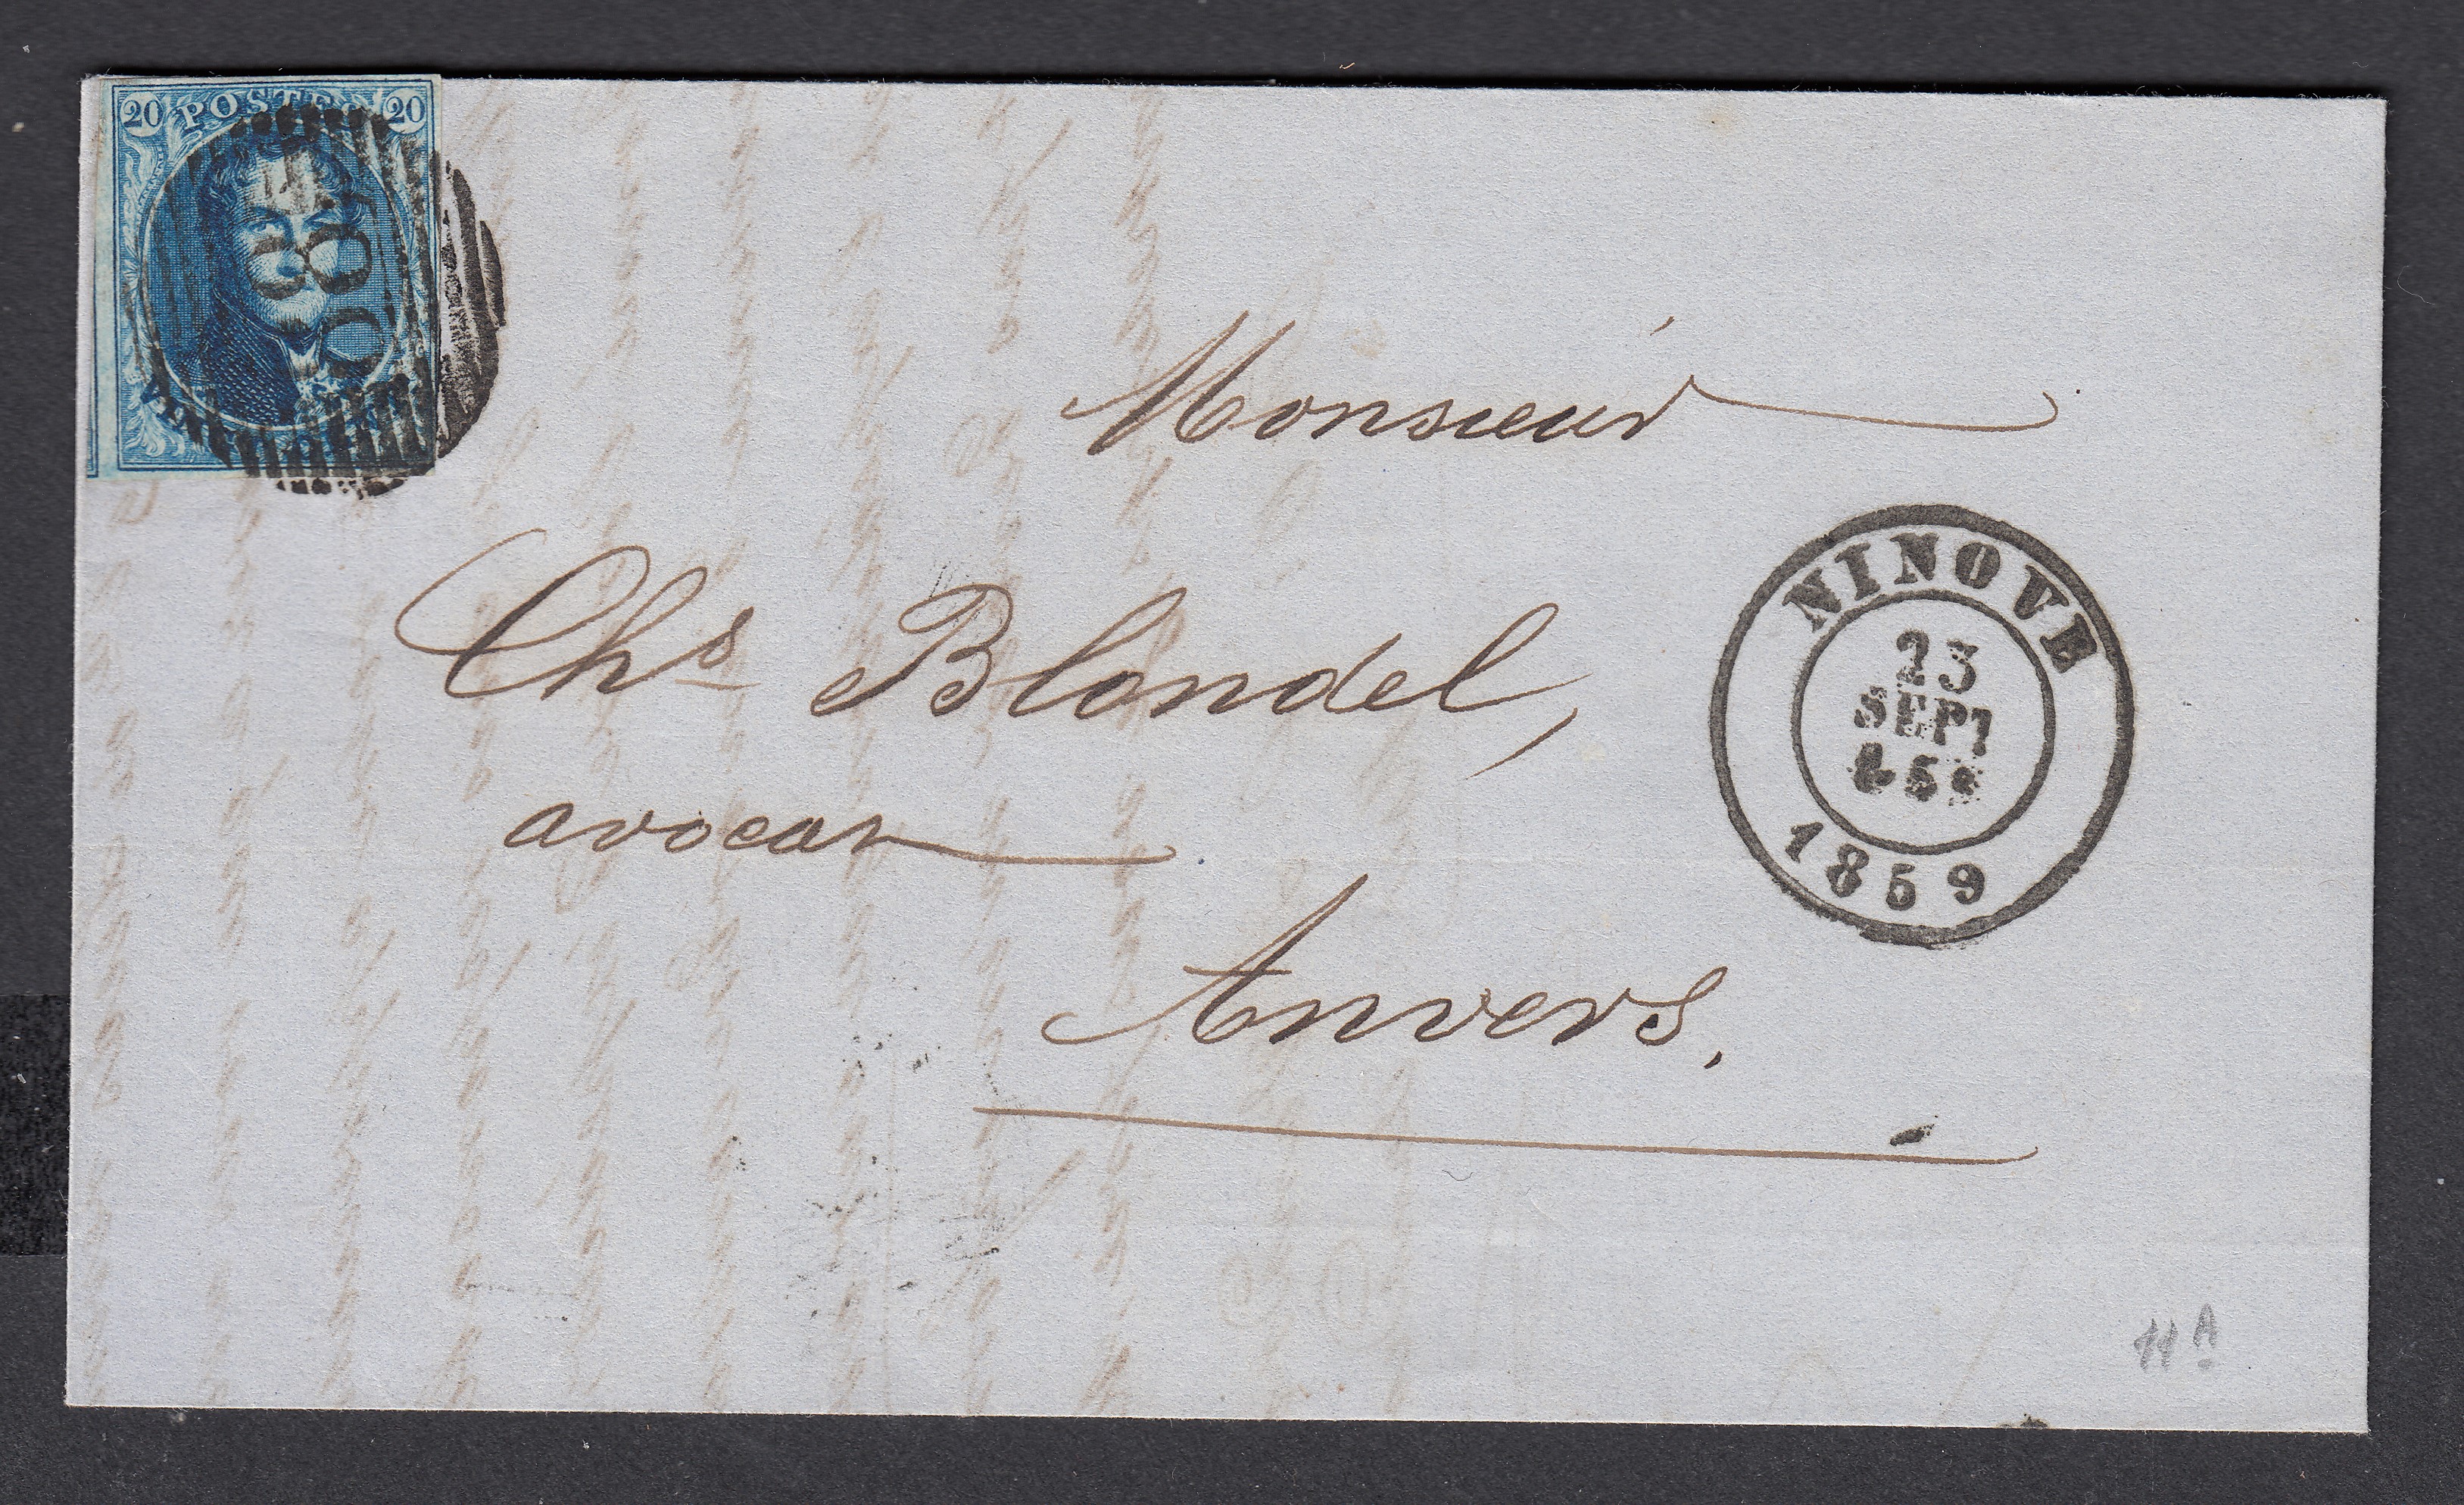 20 POSTES 20
88
Monsieur
Chs Blondel,
avocat
Anvers.
NINOVE
23
SEPT
1859
11A